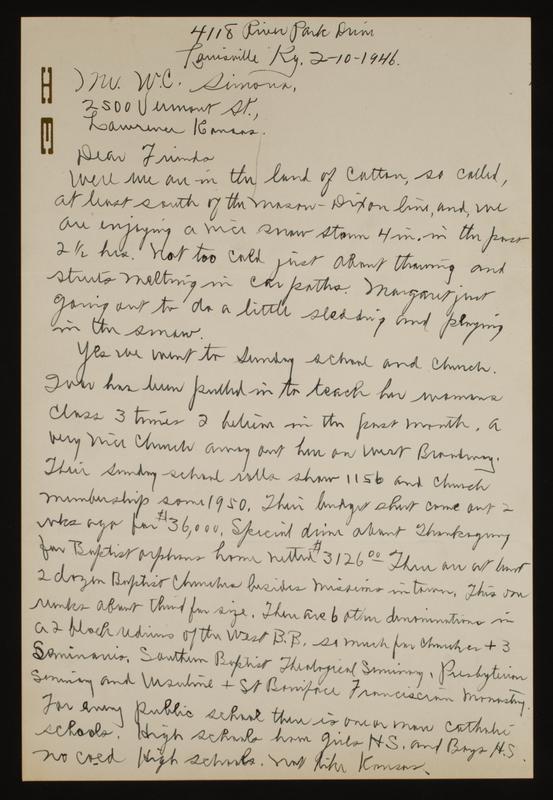 4118 River Park Drive
Louisville Ky. 2-10-1946.
Mr. W.C. Simons,
2500 Vermont St.,
Lawrence Kansas.
H E
Dear Friends
Were we are in the land of Cotton, so called,
at least south of the Mason-Dixon line, and, we
are enjoying a nice snow storm 4 in. in the past
2 1/2 hrs. Not too cold just about thawing and
streets melting in car paths. Margaret just
going out to do a little sledding and playing
in the snow.
Yes we went to Sunday school and church.
has been pulled in to teach her womans
class 3 times I believe in the past month. A
very nice Church away out here on West Broadway.
Their Sunday school rolls show 1156 and church
membership some 1950. Their budget sheet came out 2
wks ago for $36,000. Special drive about Thanksgiving
for Baptist orphans home netted $3126.00 There are at least
2 dozen Baptist Churches besides missions in town. This one
ranks about third for size. There are 6 other denominations in
a 2 block radius of the West B.B. so much for churches + 3
Seminaries. Southern Baptist Theological Seminary, Presbyterian
Seminary and Ursuline + St Boniface Franciscan Monastry.
For every public school there is one or more catholic
schools. High schools have girls H.S. and Boys H.S.
no coed High schools. Not like Kansas.